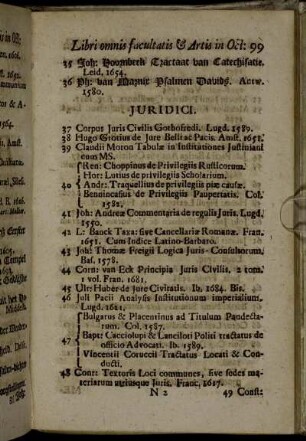 Libri omnis facultatis & Artis in Oct: 99
35 Joh: Hoornbeek Tractaat van Catechisatie.
Leid. 1654.
36 Ph: van Marnix Psalmen Davids. Antw.
1580.
JURIDICI.
37 Corpus Juris Civilis Gothofredi. Lugd. 1589.
38 Hugo Grotius de Jure Belli ac Pacis. Amst. 1651.
39 Claudii Moron Tabulæ in Institutiones Justiniani
cum MS.
Ren: Choppinus de Privilegiis Rusticorum.
Hor: Lutius de privilegiis Scholarium.
40 Andr: Traquellius de privilegiis piæ causæ.
Bendincasius de Privilegiis Paupertatis. Col.
1582.
41 Joh: Andreæ Commentária de regulis Juris. Lugd.
1550.
42 L: Banck Taxa: sive Cancellariæ Romanæ. Fran.
1651. Cum Indice Latino-Barbaro.
43 Joh: Thomæ Freigii Logica Juris-Consultorum.
Bas. 1578.
44 Corn: van Eck Principia Juris Civilis. 2 tom:
1 vol. Fran. 1681.
45 Ulr: Huber de Jure Civitatis. Ib. 1684. Bis.
46 Julii Pacii Analysis Institutionum imperialium.
Lugd. 1641.
Bulgarus & Placentinus ad Titulum Pandecta-
rum. Col. 1587.
47 Bapt: Cacciolupi & Lanciloti Polici tractatus de
officio Advocati. Ib. 1589.
Vincentii Coruccii Tractatus Locati & Con-
ducti.
48 Conr: Textoris Loci communes, sive sedes ma-
teriarum utriusque Juris. Franc. 1617.
N 2 49 Const: